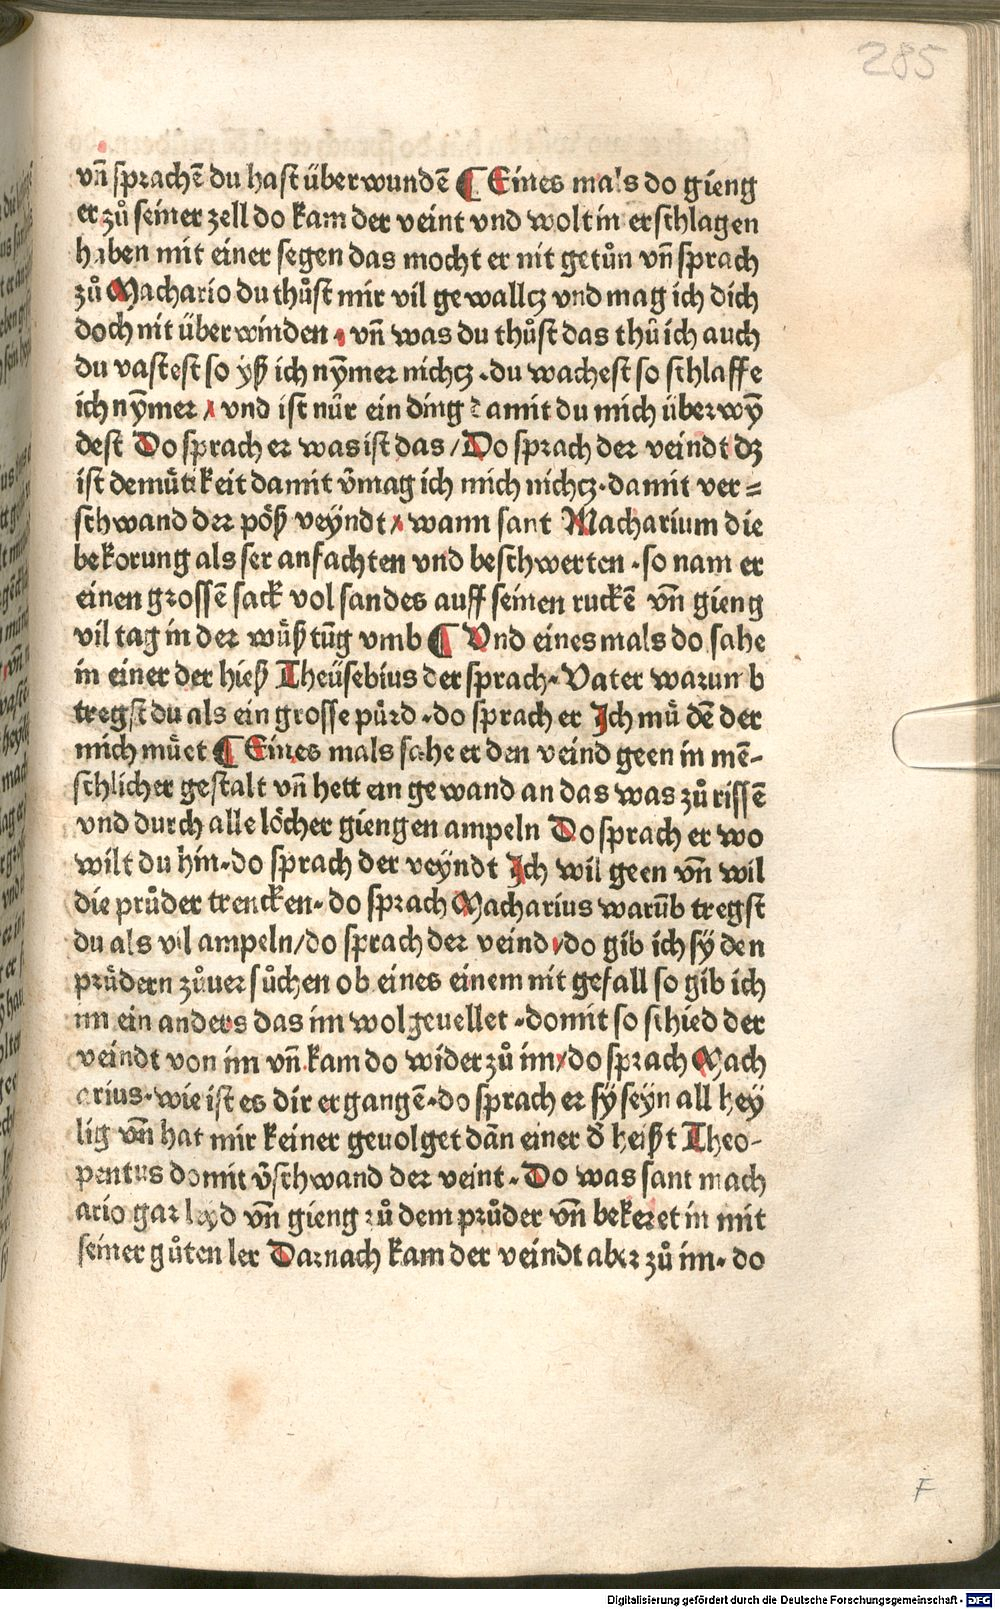 285
vn̄ sprachē du hast überwundē ¶ Eines mals do gieng
er zů seiner zell do kam der veint vnd wolt in erschlagen
haben mit einer segen das mocht er nit getůn vn̄ sprach
zů Machario du thůst mir vil gewalltz vnd mag ich dich
doch nit überwinden · vn̄ was du thůst das thů ich auch
du vastest so yß ich nȳmer nichtz · du wachest so schlaffe
ich nȳmer / vnd ist nůr ein ding damit du mich überwȳ
dest Do sprach er was ist das / Do sprach der veindt dz
ist demůtikeit damit v̄mag ich mich nichtz · damit ver=
schwand der pöß veyndt / wann sant Macharium die
bekorung als ser anfachten vnd beschwerten · so nam er
einen grossē sack vol sandes auff seinen ruckē vn̄ gieng
vil tag in der wůßtūg vmb ¶ Vnd eines mals do sahe
in einer der hieß Theüsebius der sprach · Vater warumb
tregst du als ein grosse pürd · do sprach er Ich mů dē der
mich můet ¶ Eines mals sahe er den veind geen in mē-
schlicher gestalt vn̄ hett ein gewand an das was zůrissē
vnd durch alle löcher giengen ampeln Do sprach er wo
wilt du hin · do sprach der veyndt Ich wil geen vn̄ wil
die průder trencken · do sprach Macharius warūb tregst
du als vil ampeln / do sprach der veind / do gib ich sy den
průdern zůuersůchen ob eines einem nit gefall so gib ich
im ein anders das im wolgeuellet · domit so schied der
veindt von im vn̄ kam do wider zů im / do sprach Mach
arius · wie ist es dir ergangē · do sprach er sy seyn all hey
lig vn̄ hat mir keiner geuolget dān einer d̄ heißt Theo-
pentus domit v̄schwand der veint · Do was sant mach
ario gar leyd vn̄ gieng zů dem průder vn̄ bekeret in mit
seiner gůten ler Darnach kam der veindt aber zů im · do
F
Digitalisierung gefördert durch die Deutsche Forschungsgemeinschaft - DFG